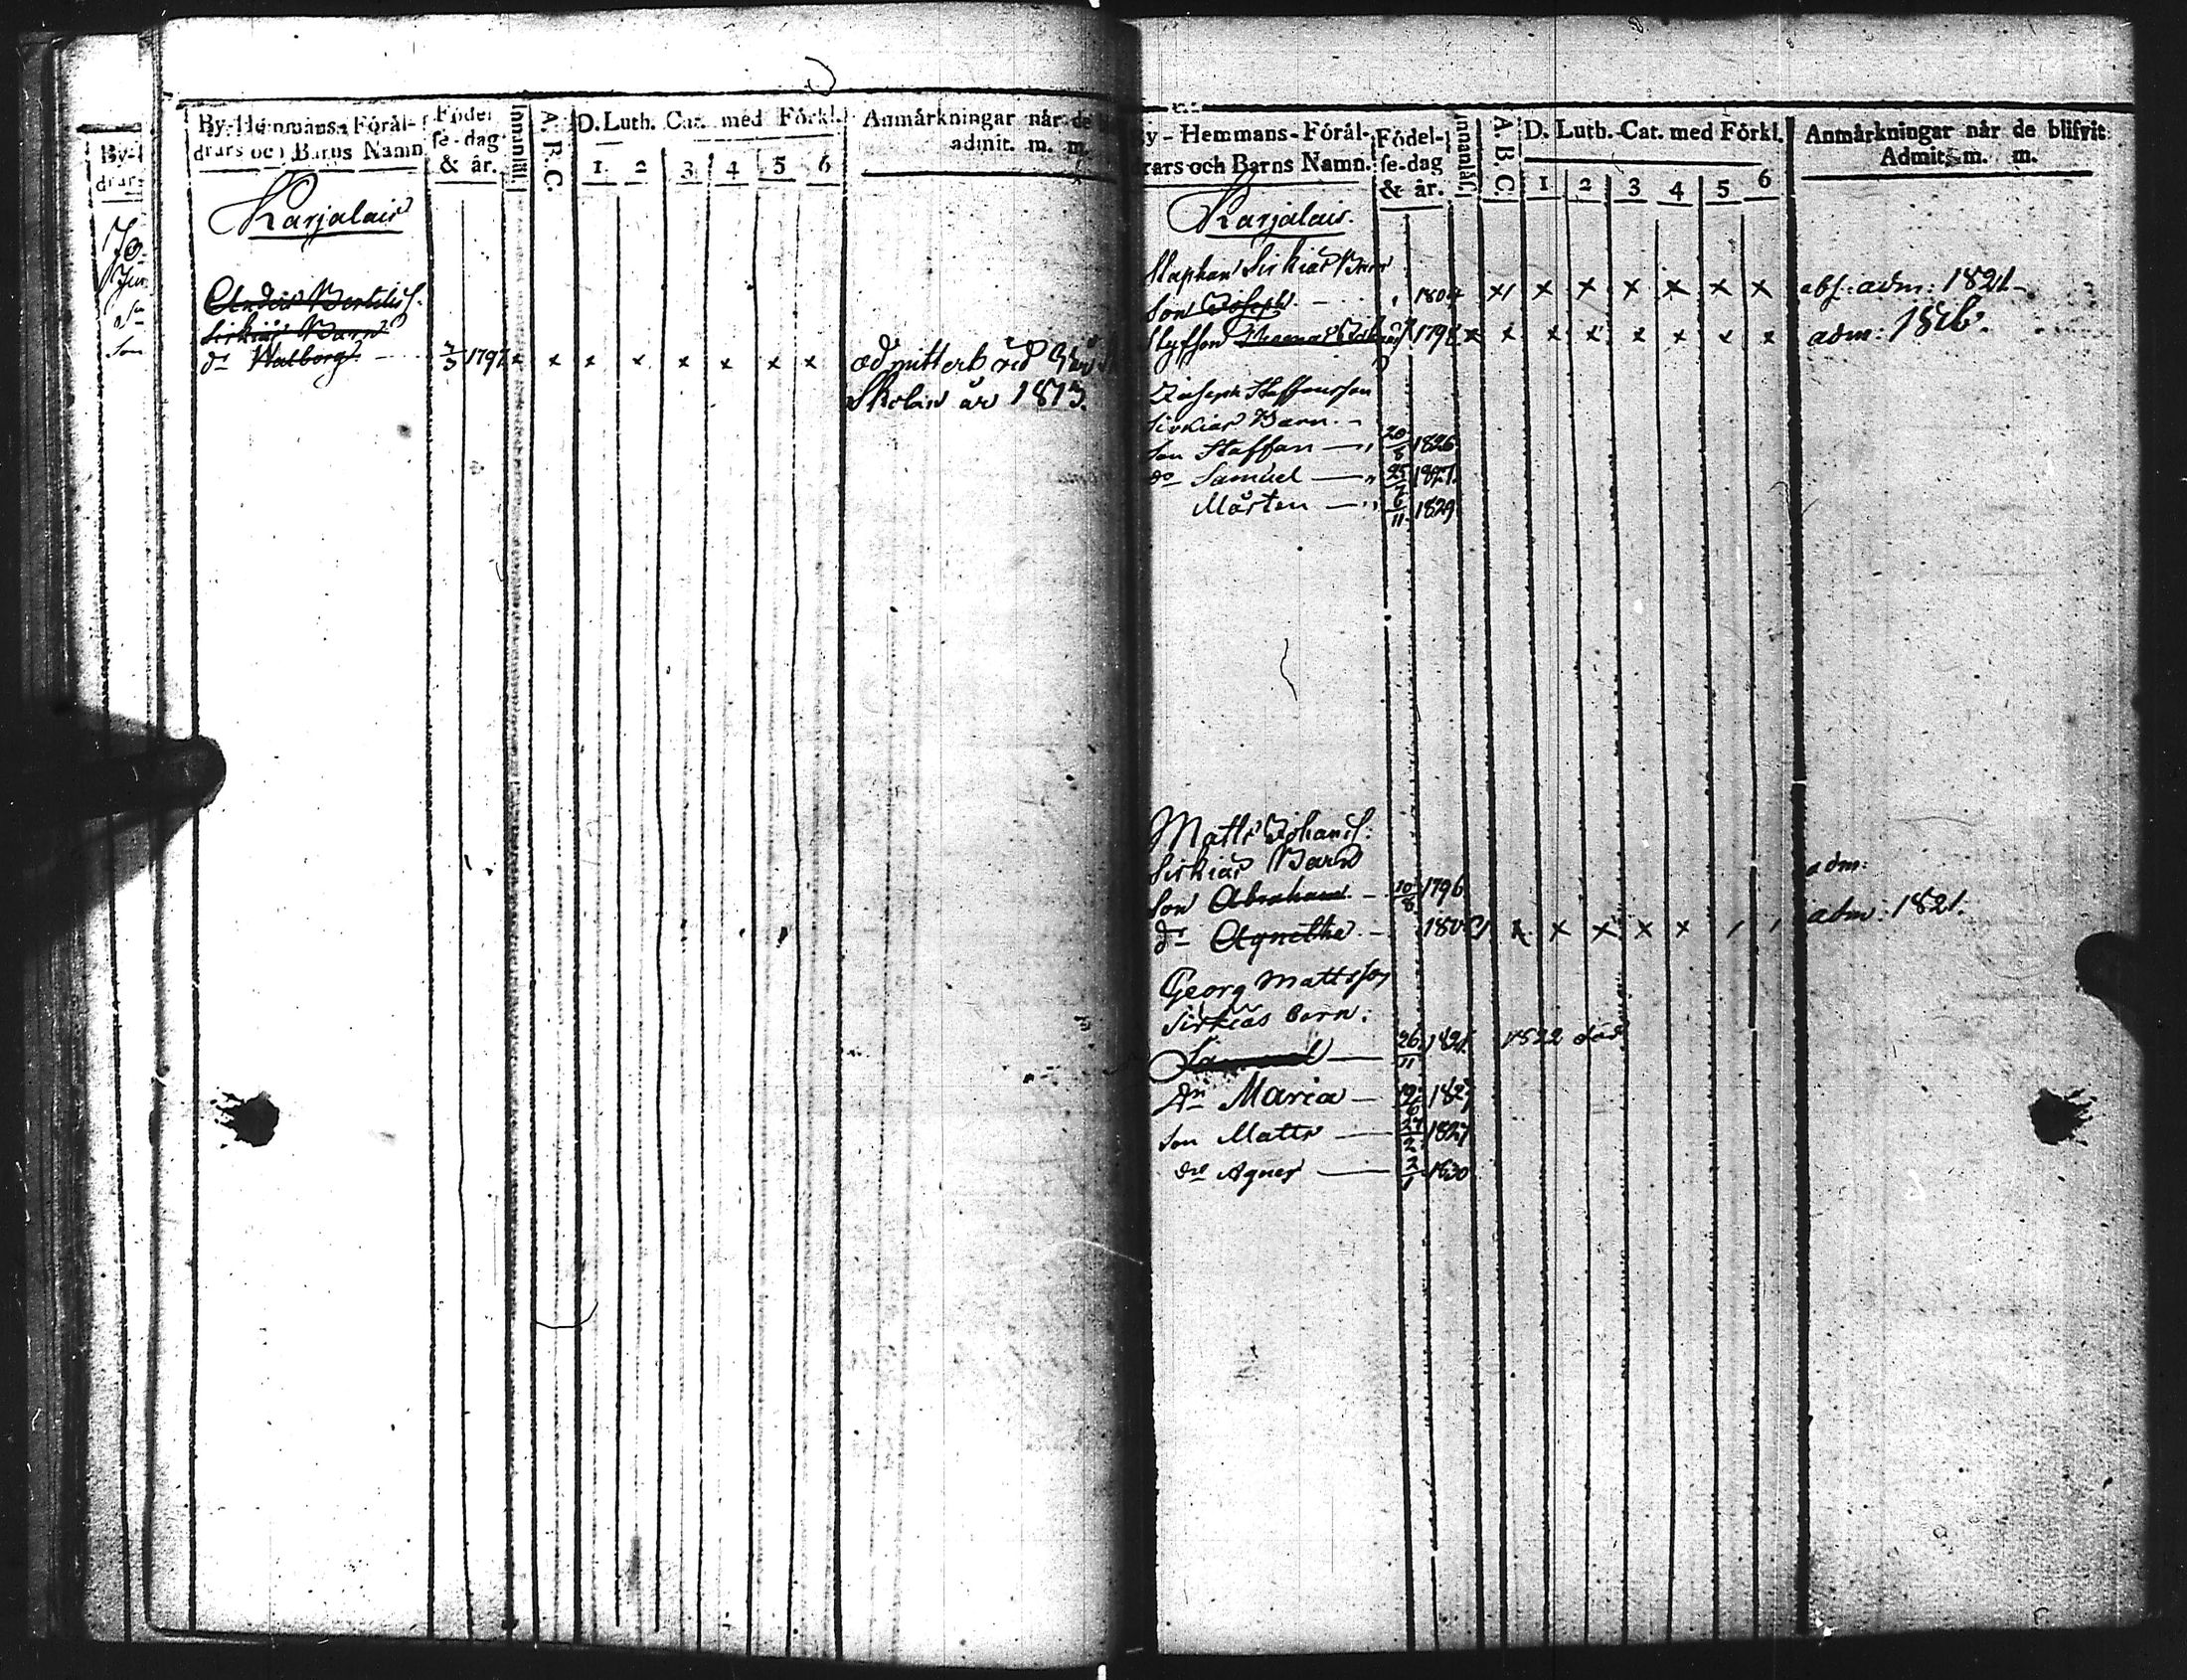 By-
drars
By-Hemmans-Förål-
drars och Barns Namn.
Födel
se-dag
& år.
Innanläs.
A.B.C.
D. Luth. Cat. med Förkl.
1 2 3 4 5 6
Anmärkningar når de
admit. m. m.
Karjalais
Anders Bertilss.
Sirkiäs Barn
dr Walborg. - 7/3 1797 x x x x x x x x admitterb vid
Skolan år 1813.
By-Hemmans-Förål-
drars och Barns Namn.
Födel-
se-dag
& år.
Innanläs.
A.B.C.
D. Luth. Cat. med Förkl.
1 2 3 4 5 6
Anmärkningar når de blifvit
Admit. m. m.
Karjalais.
Staphan Sirkiäs Barn
Son Joseph - 1804 x x x x x x x abs: adm: 1821
Styfson 1798 x x x x x x x x adm: 1816.
Joseph Staffansson
Sirkiäs Barn. -
Son Staffan — 20/8 1826
do Samuel — 25/7 1827.
Mårten — 6/11 1829
Matts Johans:
Sirkiäs Barn
Son Abraham - 10/8 1796 adm:
dr Agnetha - x x x x x adm: 1821.
Georg Mattsson
Sirkiäs barn:
Samuel — 26/11 1821. 1822 död
Dr Maria — 1823
Son Matts — 1827
dr Agnes — 2/1 1830